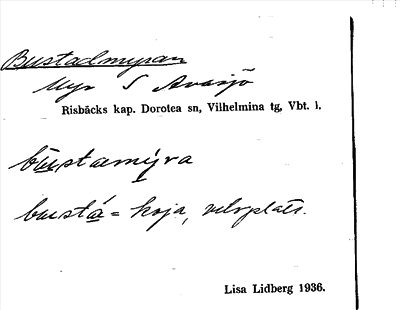 Bustadmyran
Myr S Avasjö
Risbäcks kap. Dorotea sn, Vilhelmina tg, Vbt. l.
bu̲stamy̲ra
bustá̲ = koja, viloplats.
Lisa Lidberg 1936.